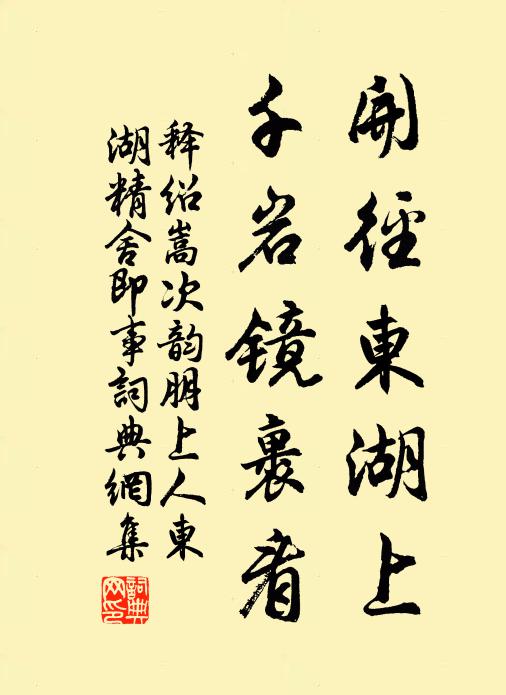 開徑東湖上
千岩鏡裏看
釋紹嵩次韵朋上人東
湖精舍即事詞典網集
詞典網印